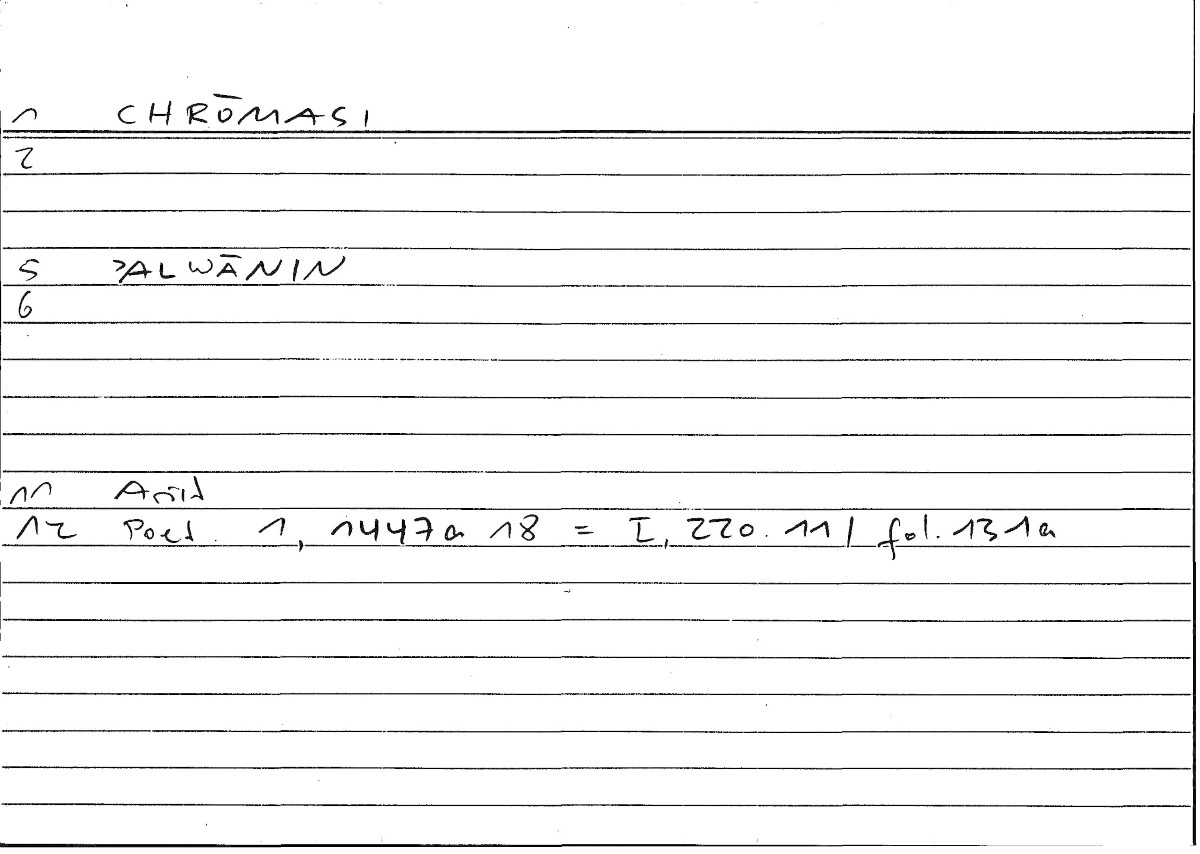 1 CHRŌMASI
2
5 ʾALWĀNIN
6
11 Arist
12 Poet. 1, 1447a 18 = I, 220.11 / fol. 131a